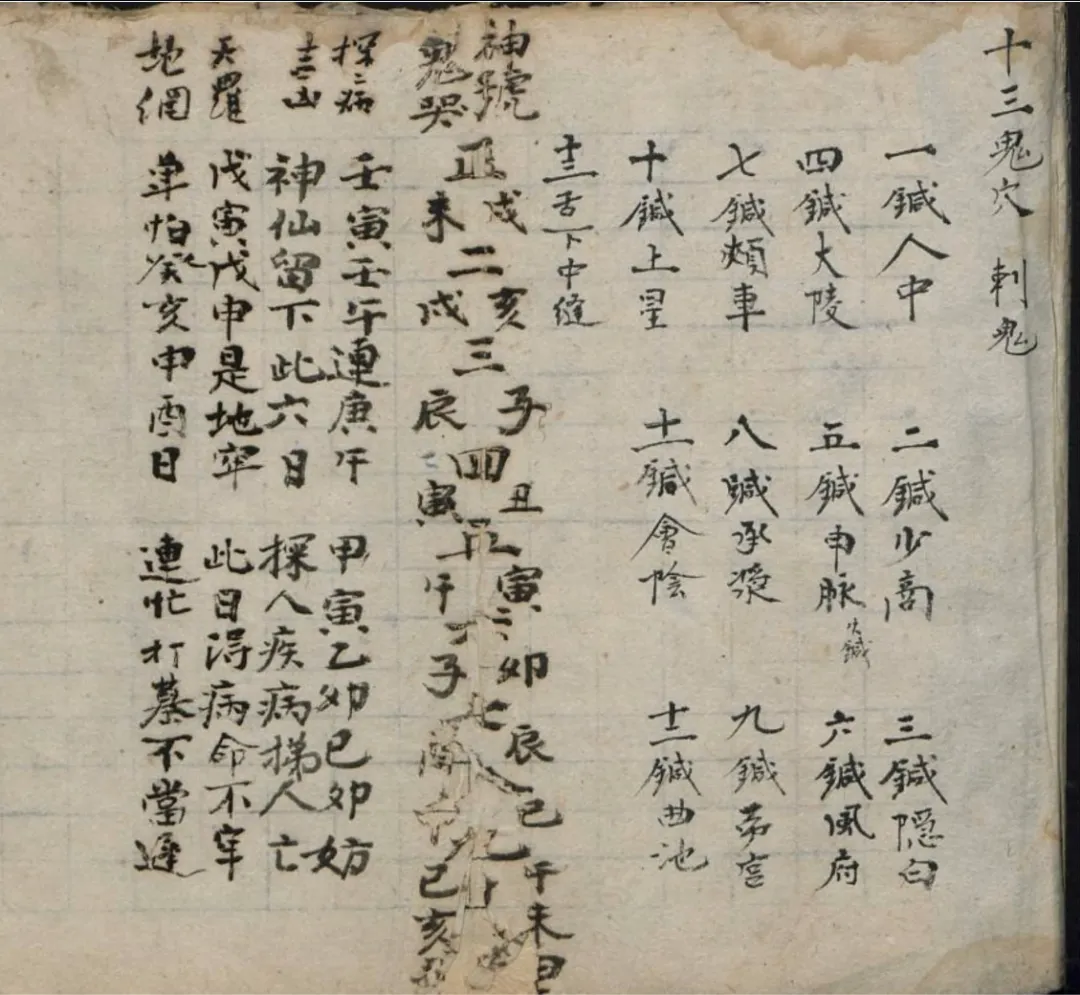 十三鬼穴 刺鬼
一鍼人中 二鍼少商 三鍼隱白
四鍼大陵 五鍼申脉火鍼 六鍼風府
七鍼頰車 八鍼承漿 九鍼劳宫
十鍼上星 十一鍼會陰 十二鍼曲池
十三舌下中縫
神號 戌 亥 子 丑 寅 卯 辰 巳 午 未
正 二 三 四 五 六 七 八 九 十
鬼哭 未 戌 辰 寅 午 子 酉 申 巳 亥
探病 壬寅壬午連庚午 甲寅乙卯己卯妨
吉凶 神仙留下此六日 探人疾病擕人亡
天羅 戊寅戊申是地牢 此日得病命不牢
地網 单怕癸亥申酉日 連忙打墓不當遲